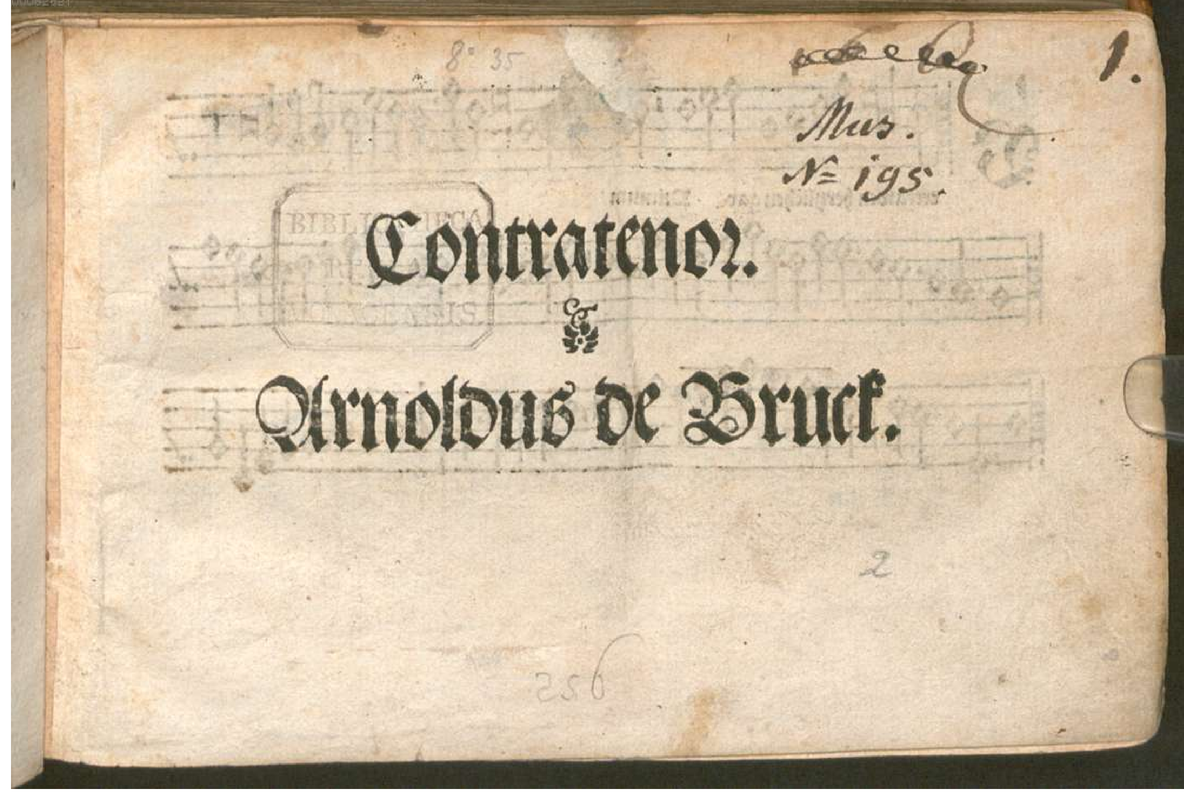 8° 35
1.
Mus.
N= 195.
BIBLIOTHECA
REGIA
MONACENSIS
Contratenor.
Arnoldus de Bruck.
2
256